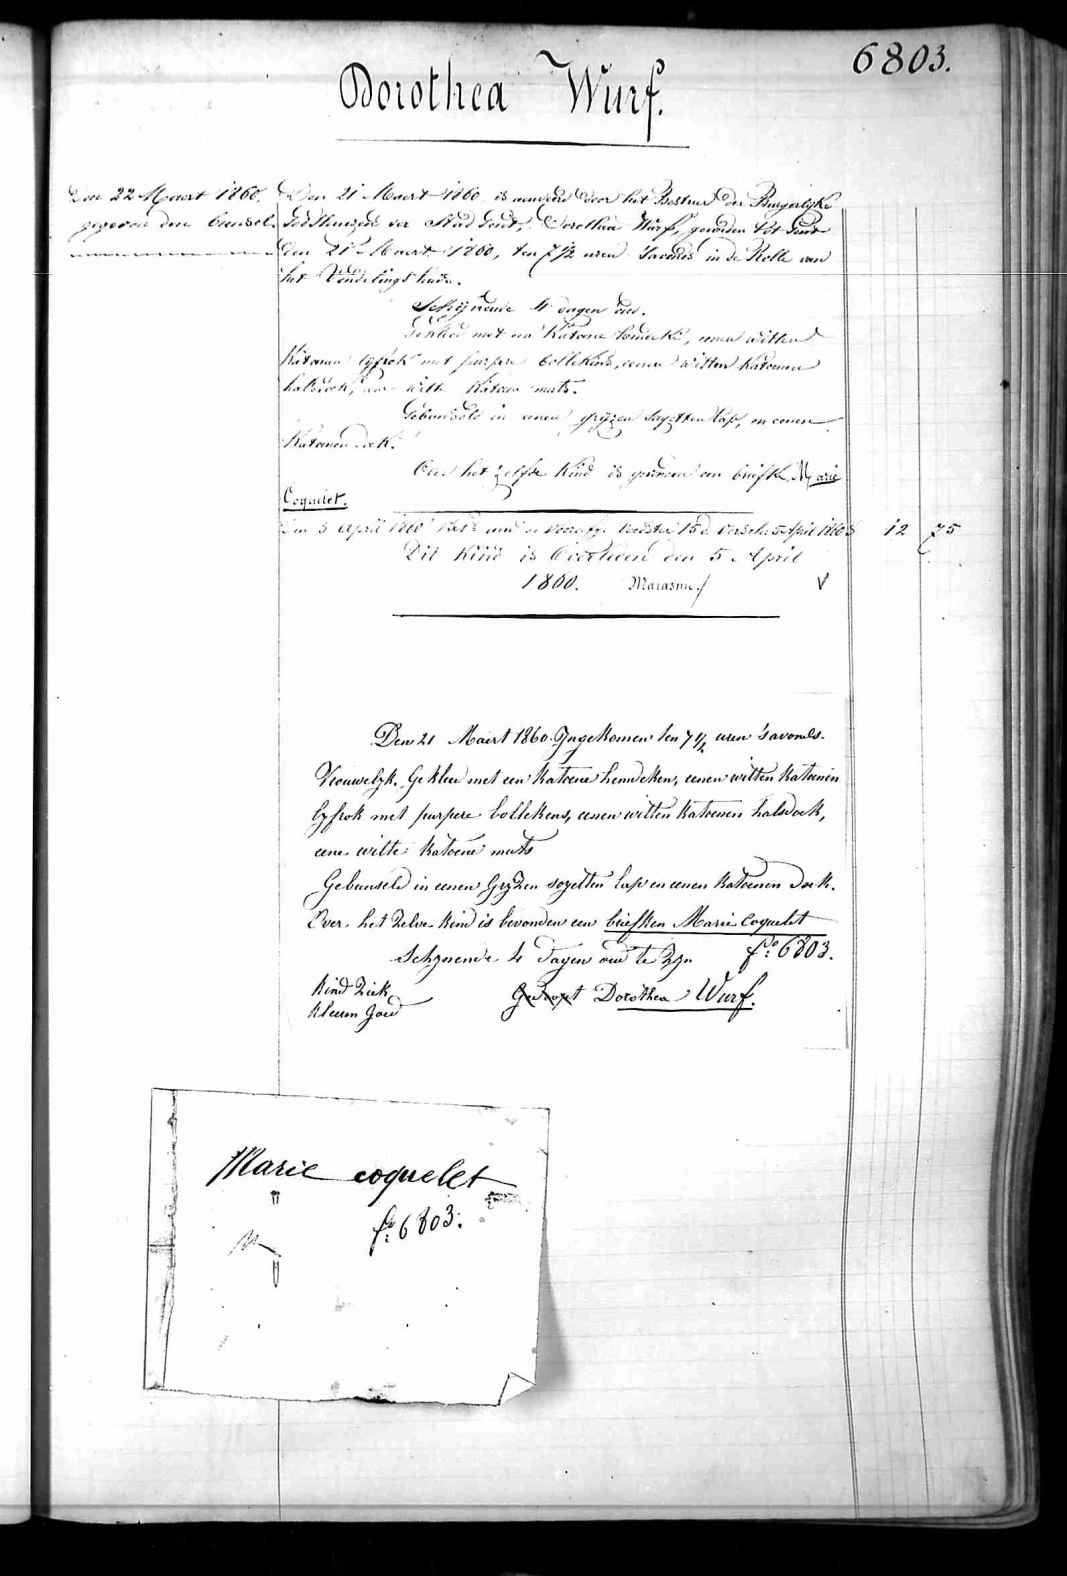 6803.
Dorothea Wurf.
Den 22 Maert 1860.
gegeven den bunsel.
Den 21 Maert 1860, is aenveerd door het Bestuur der Burgerlijke
Godshuizen der Stad Gent, Dorothea Wurf, gevonden tot Gent
den 21 Maert 1860, ten 7 1/2 uren 's avonds in de Rolle van
het Vondelingshuis.
Schijnende 4 dagen oud.
Gekleed met een Katoene hemdeke, eenen witten
Katoenen lijfrok met purpere bollekens, eenen witten Katoenen
halsdoek, eene witte Katoene muts.
Gebunseld in eenen grijzen sayetten lap, en eenen
Katoenen doek.
Over het zelfde Kind is gevonden een briefke Marie
Coquelet.
5 April 1860 15 d. 5 April 1860 12 75
Dit Kind is Overleden den 5 April
1860. Marasme.
Den 21 Maert 1860. Ingekomen ten 7 1/2 uren 's avonds.
Vrouwelyk. Gekleed met een Katoene hemdeken, eenen witten Katoenen
lyfrok met purpere bollekens, eenen witten Katoenen halsdoek,
eene witte Katoene muts
Gebunseld in eenen Gryzen sayetten lap en eenen Katoenen doek.
Over het zelve kind is bevonden een briefken Marie Coquelet
Schynende 4 dagen oud te zyn fo: 6803.
Kind Ziek
Kleeren Goed
Gedoopt Dorothea Wurf.
Marie coquelet
fo: 6803.